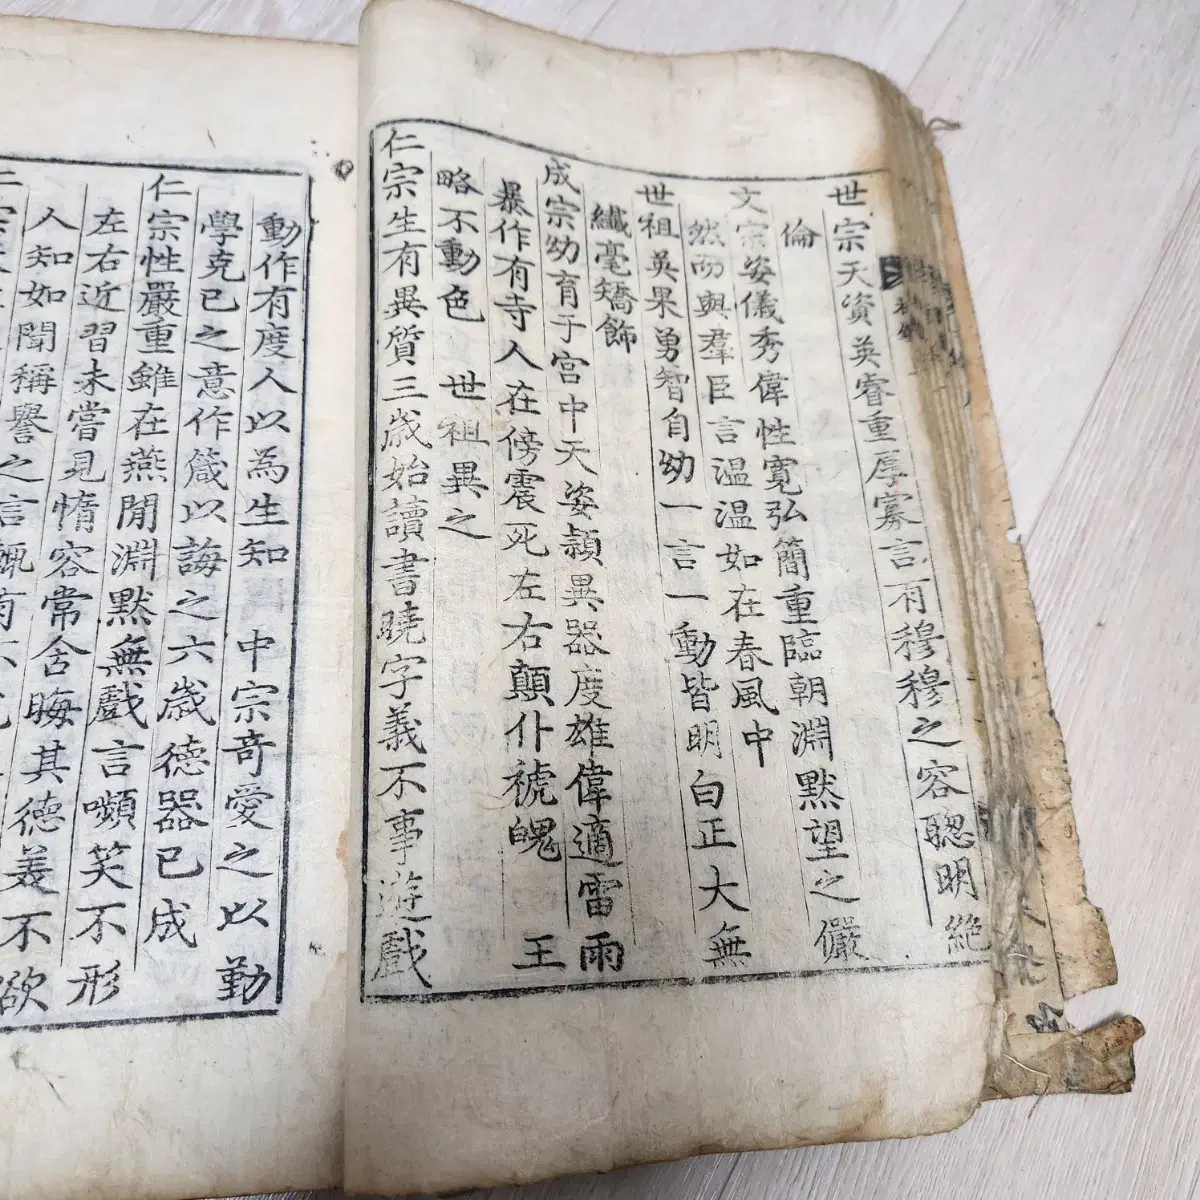 世宗天資英睿重厚寡言有穆穆之容聰明絶
倫
文宗姿儀秀偉性寛弘簡重臨朝淵默望之儼
然而與羣臣言温温如在春風中
世祖英果勇智自幼一言一動皆明白正大無
纖毫矯飾
成宗幼育于宫中天姿頴異器度雄偉適雷雨
暴作有寺人在傍震死左右顛仆褫魄 王
略不動色 世祖異之
仁宗生有異質三歲始讀書曉字義不事遊戲
動作有度人以為生知 中宗奇愛之以勤
學克已之意作箴以誨之六歲德器已成
仁宗性嚴重雖在燕閒淵默無戲言嚬笑不形
左右近習未嘗見惰容常含晦其德美不欲
人知如聞稱譽之言輒有不